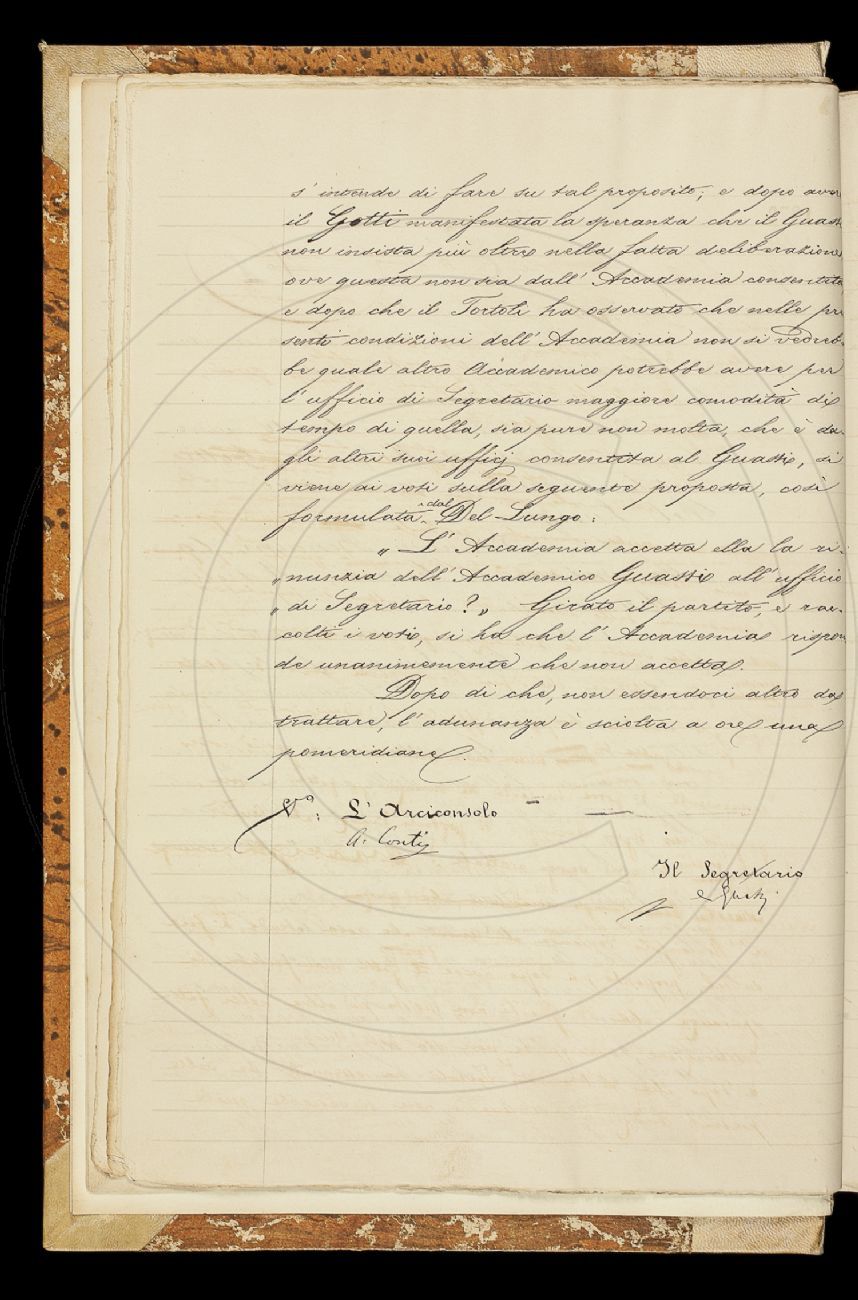 s' intende di fare su tal proposito; e dopo aver
il Gotti manifestata la speranza che il Guast
non insista più oltre nella fatta deliberazione
ove questa non sia dall' Accademia consentita,
e dopo che il Tortoli ha osservato che nelle pre
senti condizioni dell' Accademia non si vedreb-
be quale altro Accademico potrebbe avere per
l' ufficio di Segretario maggiore comodità di
tempo di quella, sia pure non molta, che è da-
gli altri suoi ufficj consentita al Guasti, si
viene ai voti sulla seguente proposta, così
formulata dal Del Lungo:
„ L' Accademia accetta ella la ri-
„ nunzia dell' Accademico Guasti all' ufficio
„ di Segretario? „ Girato il partito, e rac-
colti i voti, si ha che l' Accademia rispon
de unanimemente che non accetta.
Dopo di che, non essendoci altro da
trattare, l' adunanza è sciolta a ore una
pomeridiane.
Vº: L' Arciconsolo
A. Conti
Il Segretario
C. Guasti